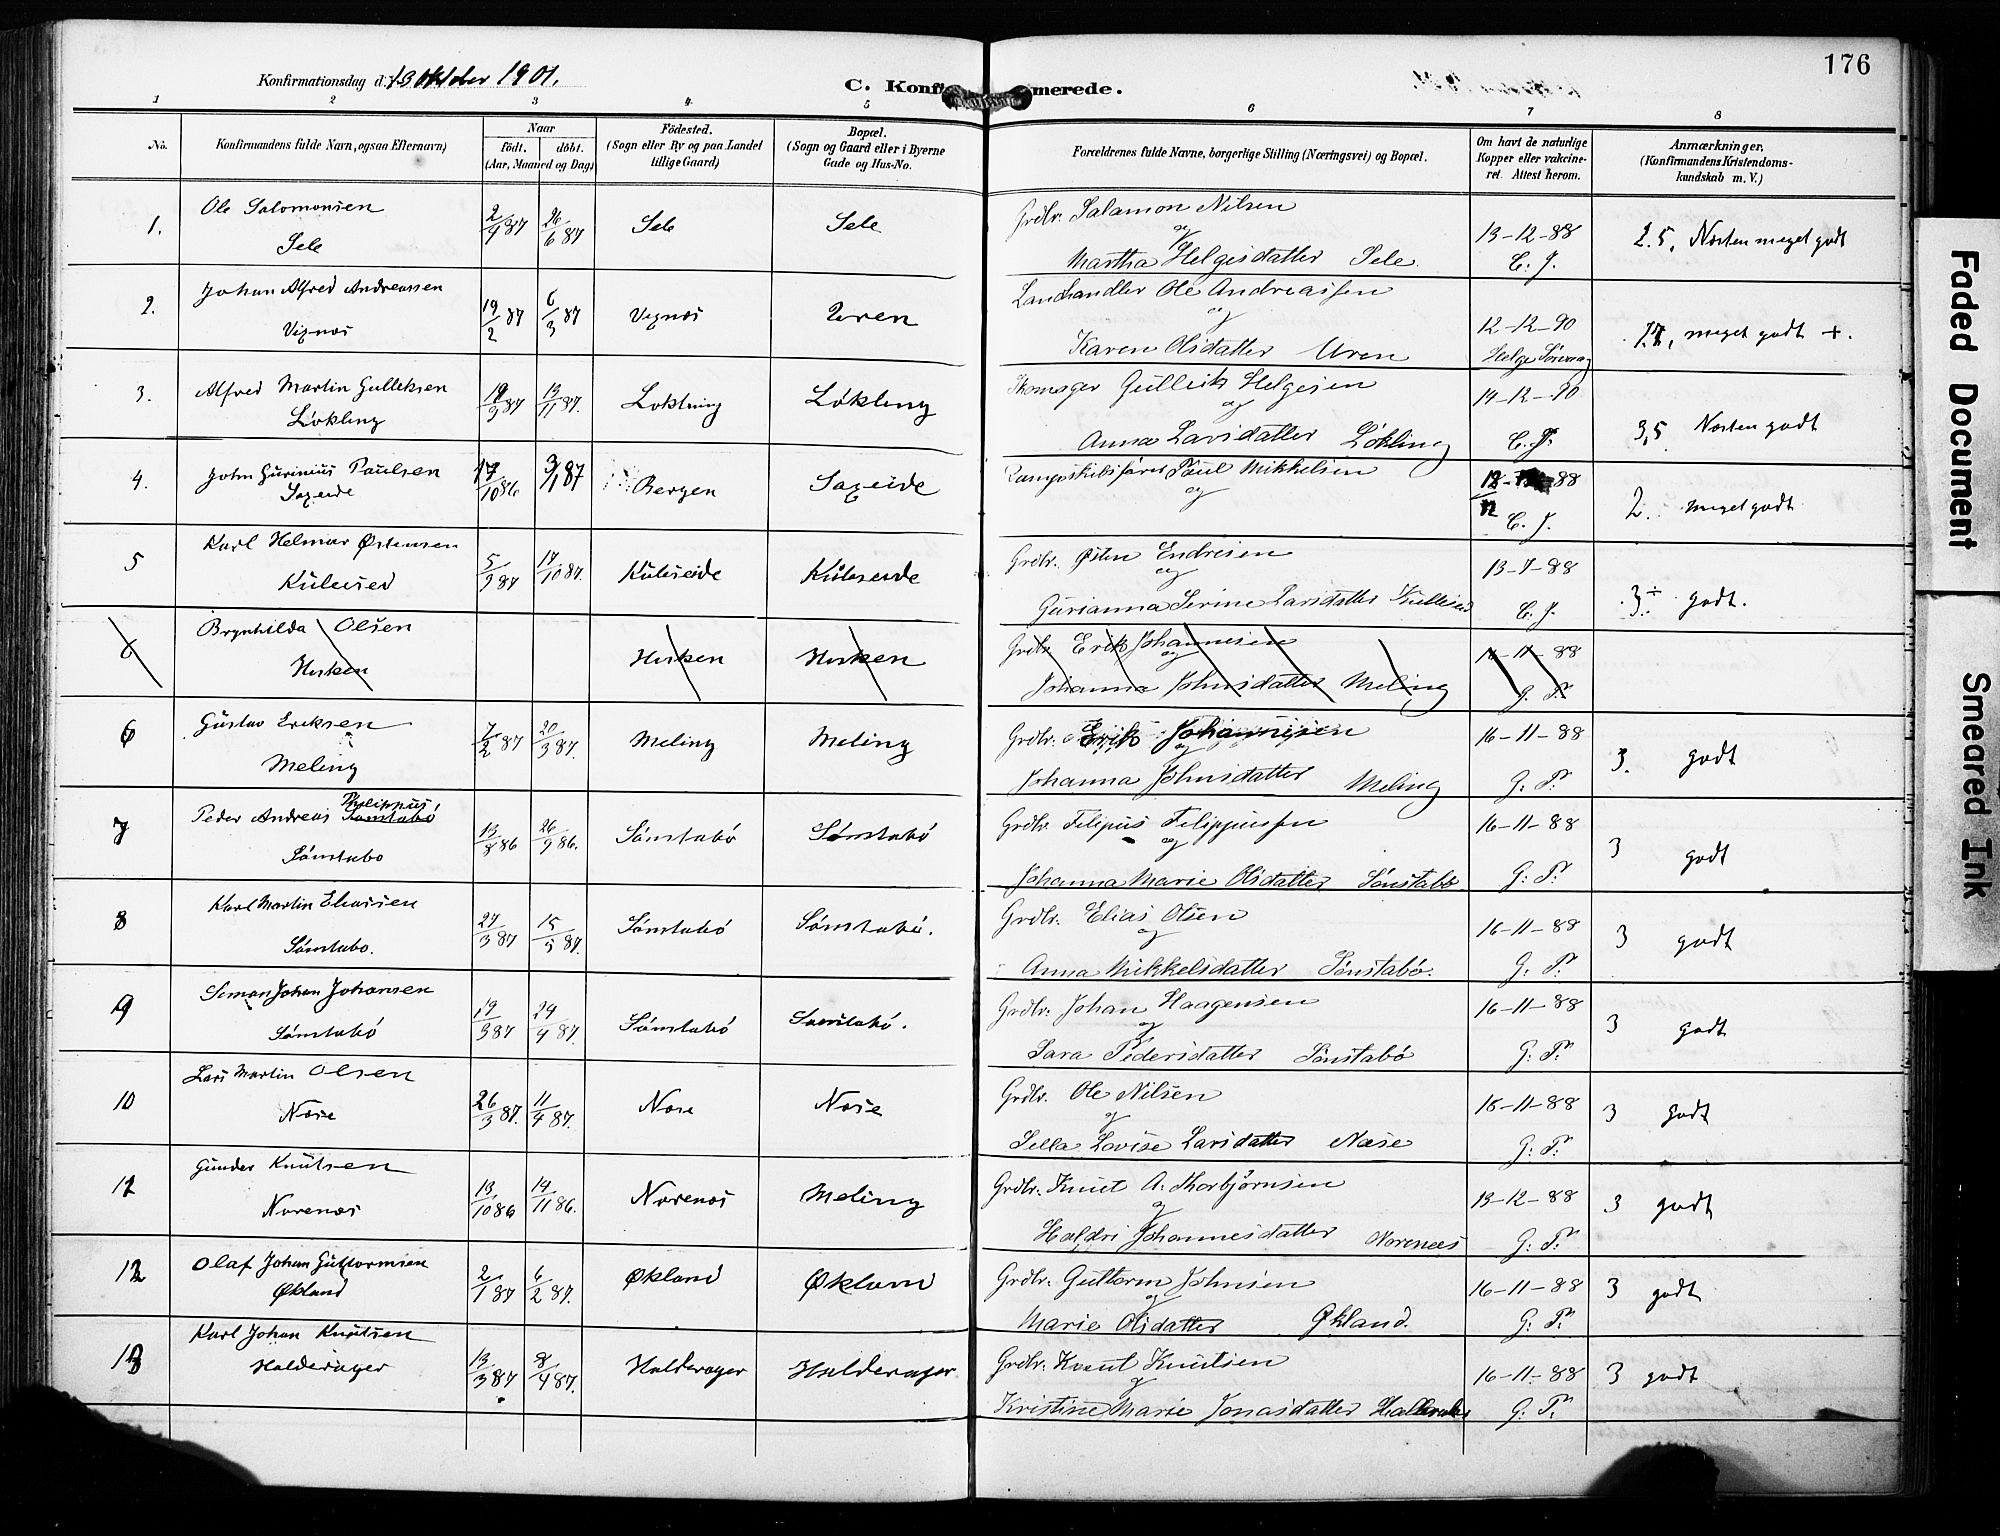 176
Konfirmationsdag d. 13 Oktober 1901.
C. Konfirmerede.
1 2 3 4 5 6 7 8
No. Konfirmandens fulde Navn, ogsaa Efternavn)
Naar
födt. döbt.
(Aar, Maaned og Dag)
Födested.
(Sogn eller By og paa Landet
tillige Gaard)
Bopæl.
(Sogn og Gaard eller i Byerne
Gade og Hus-No.
Forældrenes fulde Navne, borgerlige Stilling (Næringsvei) og Bopæl.
Om havt de naturlige
Kopper eller vakcine-
ret. Attest herom.
Anmærkninger.
(Konfirmandens Kristendoms-
kundskab m. V.)
1. Ole Salomonsen
Sele
2/4 87 26/6 87 Sele Sele
Grdbr. Salamon Nilsen
og
Martha Helgesdatter Sele
13-12-88
C. J.
2.5, Næsten meget godt
2. Johan Alfred Andreassen
Vignæs
19/2 87 6/3 87 Vignæs Uren
Landhandler Ole Andreassen
og
Karen Olsdatter Uren
12-12-90
Helge Sørevag
meget godt +.
3. Alfred Martin Gulleksen
Løkling
13/11 87. Løkling
Gulleik Helgesen
og
Anna Larsdatter Løkling
14-12-90
C. J.
3,5 Næsten godt
4. John Gurinius Paulsen
Sageide
17/10 86 3/1 87 Bergen Sageide
Paul Mikkelsen
og
88
C. J.
2. meget godt
5 Karl Helmar Østensen
Kuleseid
5/9 87 17/10 87. Kuleseide Kuleseide
Grdbr. Østen Endresen
og
Gurianna Serine Larsdatter
13-7-88
C. J.
3÷ godt.
6 Brynhilda Olsen
Husken
Husken Husken
Grdbr. Erik Johannesen
og
Johanna Johnsdatter Meling
16-11-88
G. P.
6 Gustav Eriksen
Meling
7/2 87 20/3 87. Meling Meling
Grdbr. Erik Johannesen
og
Johanna Johnsdatter Meling
16-11-88
G. P.
3. godt
7 Peder Andreas Sønstabö
Sönstabo
13/8 86 26/9 86. Sönstabö Sönstabö
Grdbr. Filipus Filippussen
og
Johanna Marie Olsdatter Sönstabö
16-11-88
G. P.
3 godt
8 Karl Martin Eliassen
Sönstabo.
27/3 87 15/5 87. Sönstabö Sönstabö.
Grdbr. Elias Olsen
og
Anna Mikkelsdatter Sönstabö.
16-11-88
G. P.
3 godt
9 Simon Johan Johansen
Sönstabö
19/3 87 24/4 87. Sönstabö Sönstabö.
Grdbr. Johan Haagensen
og
Sara Pedersdatter Sönstabö
16-11-88
G. P.
3 godt
10 Lars Martin Olsen
Nase
26/3 87. 11/4 87. Nase Nase
Grdbr. Ole Nilsen
og
Sella Lovise Larsdatter Næse
16-11-88
G. P.
3 godt
11 Gunder Knutsen
Norenæs
13/10 86 14/11 86. Norenæs Meling
Grdbr. Knut A. Thorbjørnsen
og
Johannesdatter Norenæs
13-12-88
G. P.
3 godt
12 Olaf Johan Guttormsen
Økland
2/1 87 6/2 87. Økland Økland
Grdbr. Guttorm Johnsen
og
Marie Olsdatter Økland.
16-11-88
G. P.
3 godt
13 Karl Johan Knutsen
Halderager
13/3 87 8/4 87. Halderager Halderager
Grdbr. Knut Knutsen
og
Kristine Marie Jonasdatter
16-11-88
G. P.
3 godt
Faded Document
Smeared Ink